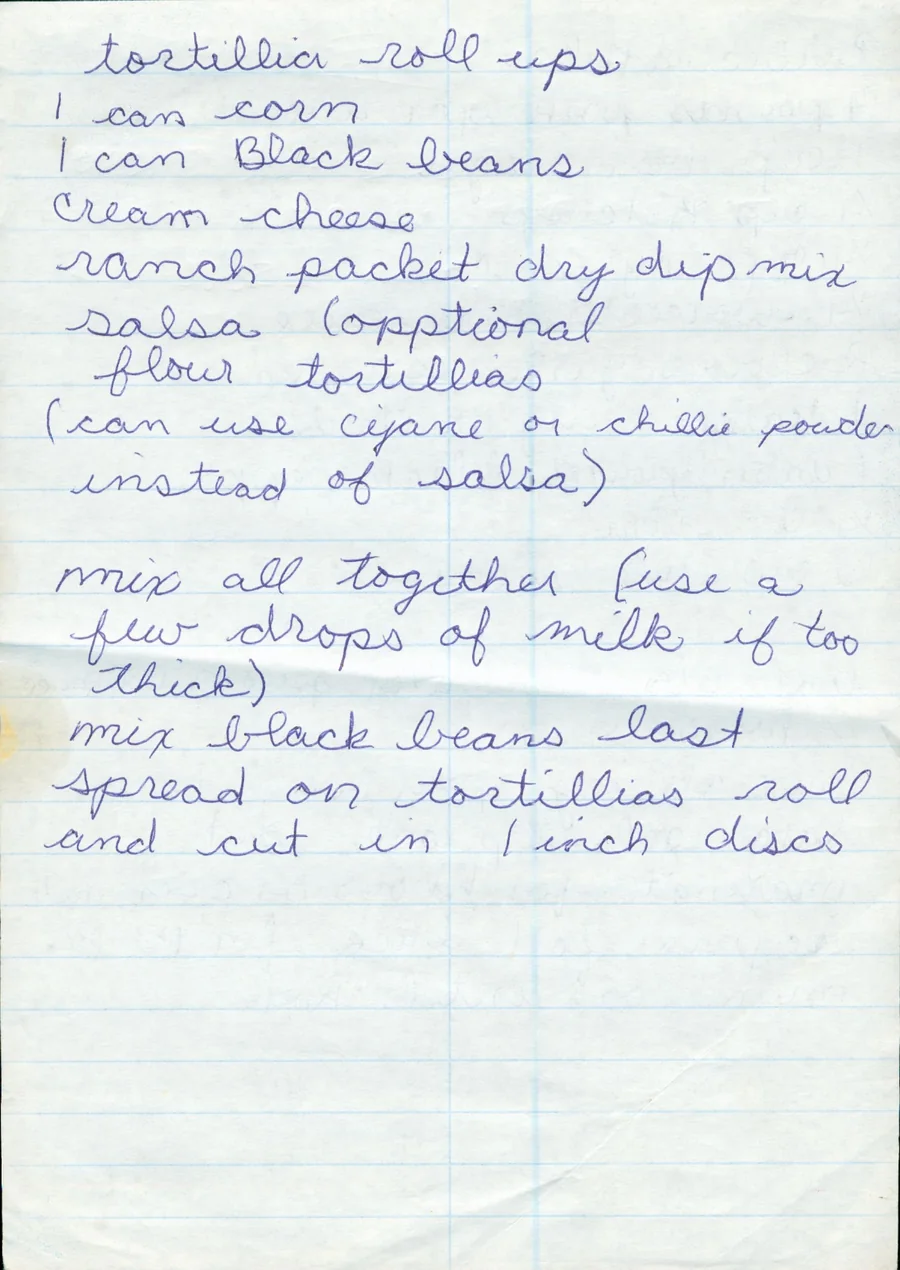 tortillia roll ups
1 can corn
1 can Black beans
Cream cheese
ranch packet dry dip mix
salsa (opptional
flour tortillias
(can use cijane or chillie powder
instead of salsa)
mix all together (use a
few drops of milk if too
thick)
mix black beans last
spread on tortillias roll
and cut in 1 inch discs